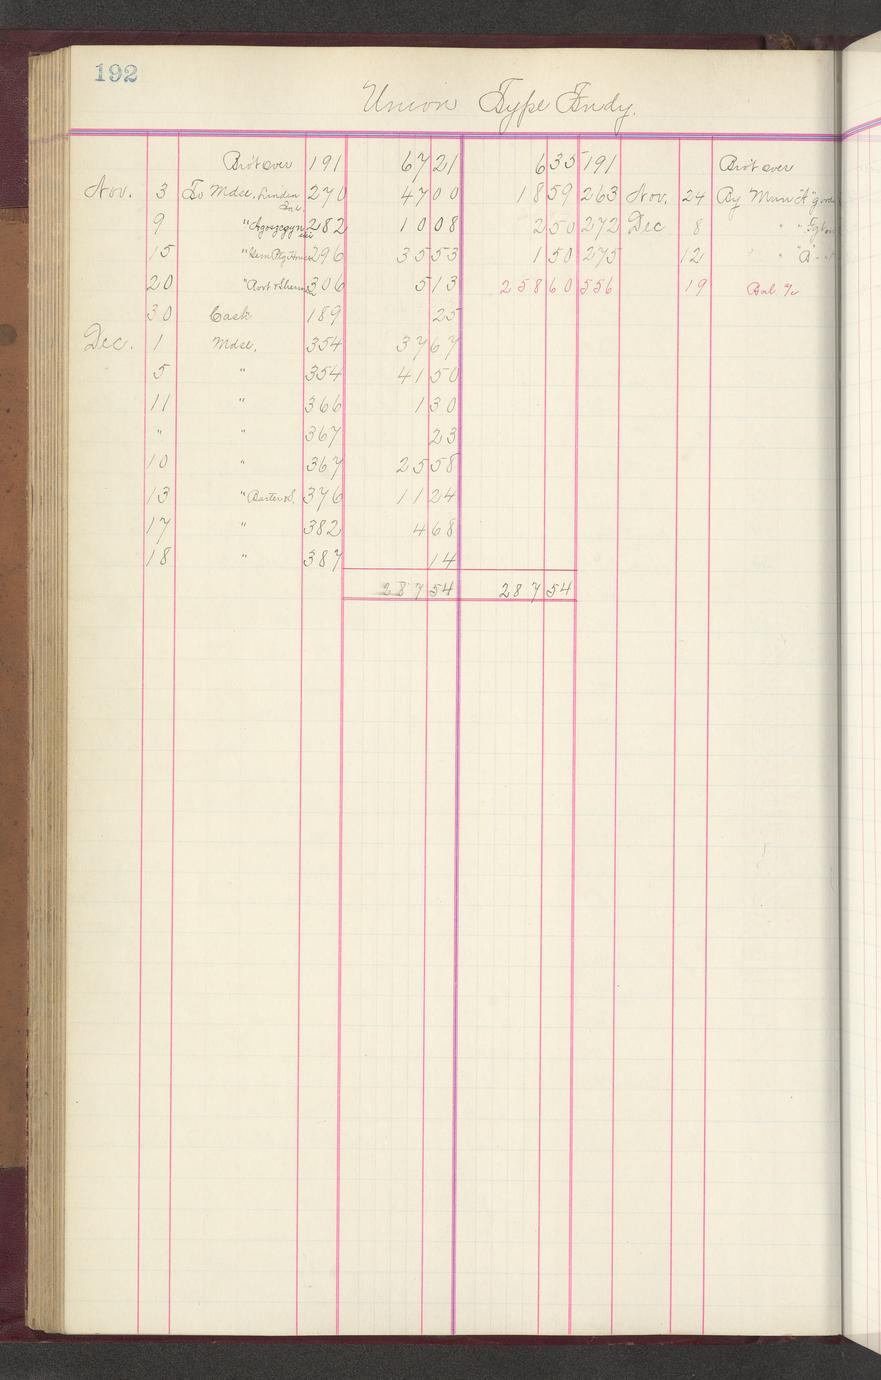 192
Union Type Fndy.
Bro't over 191 67 21 6 35 191 Bro't over
Nov. 3 To Mdse. Linden 270 47 00 18 59 263 Nov. 24 By Mun "A"
9 " 282 10 08 2 50 272 Dec 8 " "
15 " 296 35 53 1 50 275 12 " " "A" "
20 " 306 5 13 258 60 556 19 Bal %
30 Cash 189 25
Dec. 1 Mdse. 354 37 67
5 " 354 41 50
11 " 366 1 30
" " 367 23
10 " 367 25 58
13 " Barter & S. 376 11 24
17 " 382 4 68
18 " 387 14
287 54 287 54